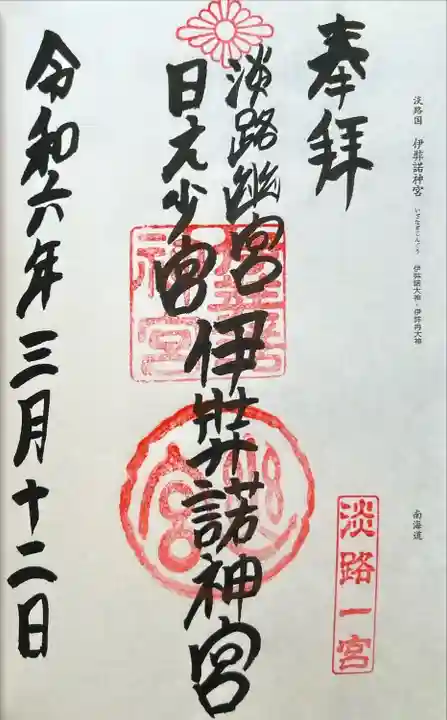 淡路国 伊弉諾神宮 いざなぎじんぐう 伊弉諾大神・伊弉冉大神
南海道
奉拝
淡路一宮
淡路幽宮
日之少宮
伊弉諾神宮
令和六年三月十二日
伊弉諾
神宮
幽
宮